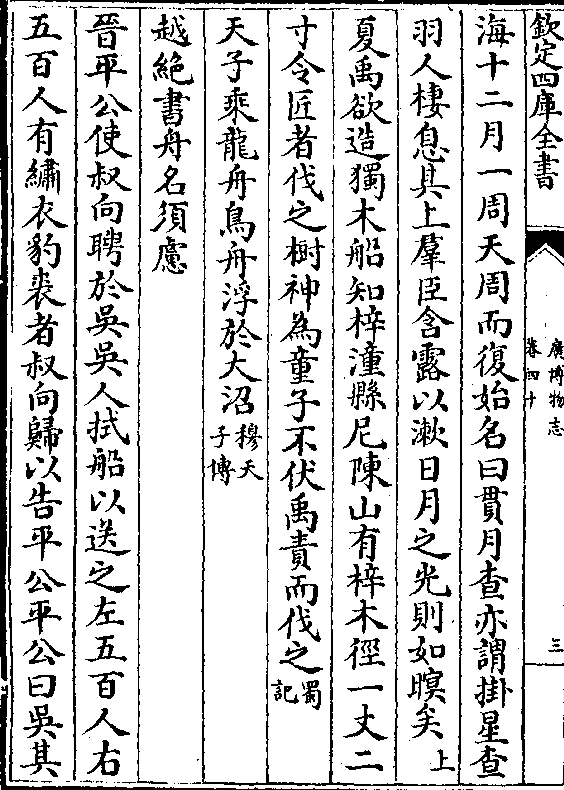 欽定四庫全書
廣博物志
卷四十
三
海十二月一周天周而復始名曰貫月查亦謂掛星查
羽人棲息其上羣臣含露以漱日月之光則如暝矣上
夏禹欲造獨木船知梓潼縣尼陳山有梓木徑一丈二
寸令匠者伐之樹神為童子不伏禹責而伐之蜀記
天子乘龍舟鳥舟浮於大沼穆天子博
越絶書舟名須慮
晉平公使叔向聘於吳吳人拭船以送之左五百人右
五百人有繡衣豹裘者叔向歸以告平公平公曰吳其